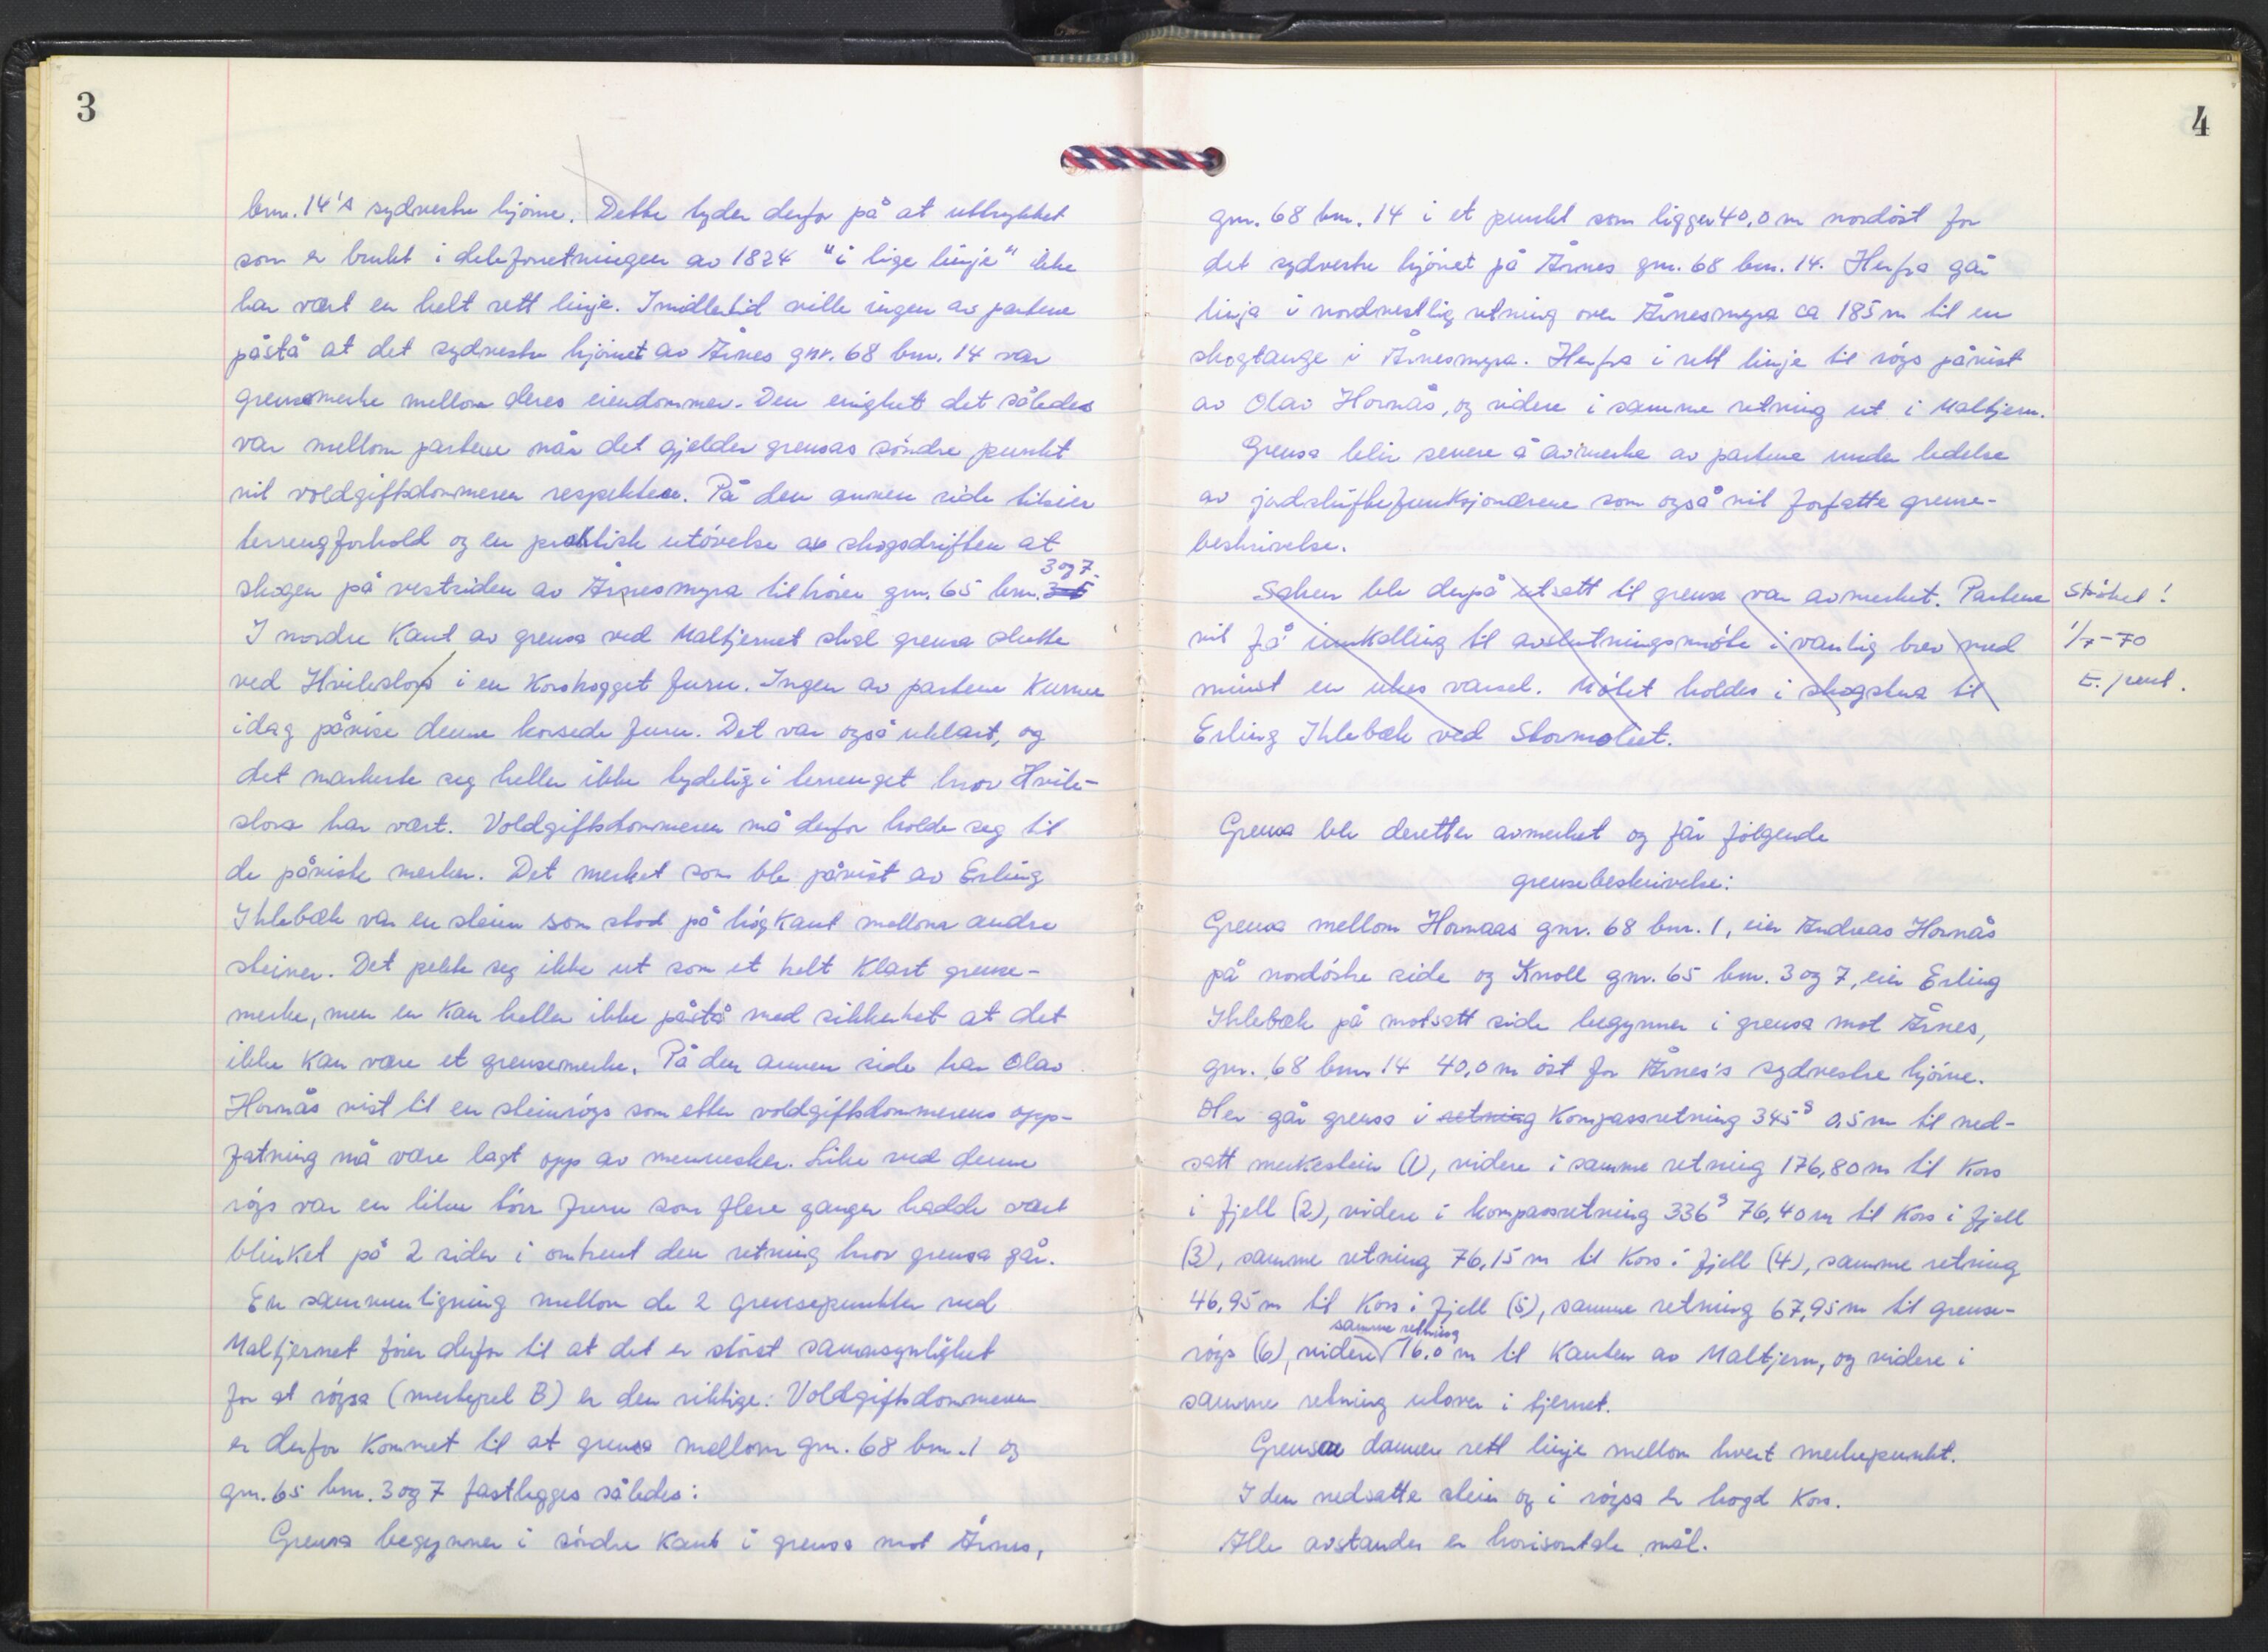 3
bnr. 14's sydvestre hjørne. Dette tyder derfor på at uttrykket
som er brukt i deleforretningen av 1824 "i lige linje" ikke
har vært en helt rett linje. Imidlertid ville ingen av partene
påstå at det sydvestre hjørnet av Årnes gnr. 68 bnr. 14 var
grensemerke mellom deres eiendommer. Den enighet det således
var mellom partene når det gjelder grensas søndre punkt
vil voldgiftsdommeren respektere. På den annen side tilsier
terrengforhold og en praktisk utøvelse av skogsdriften at
skogen på vestsiden av Årnesmyra tilhører gnr. 65 bnr. 3 og 7.
I nordre kant av grensa ved Maltjernet skal grensa slutte
ved Hvileslora i en korshogget furu. Ingen av partene kunne
idag påvise denne korsede furu. Det var også uklart, og
det markerte seg heller ikke tydelig i terrenget hvor Hvile-
slora har vært. Voldgiftsdommeren må derfor holde seg til
de påviste merker. Det merket som ble påvist av Erling
Ihlebæk var en stein som stod på høgkant mellom andre
steiner. Det pekte seg ikke ut som et helt klart grense-
merke, men en kan heller ikke påstå med sikkerhet at det
ikke kan være et grensemerke. På den annen side har Olav
Hornås vist til en steinrøys som etter voldgiftsdommerens opp-
fatning må være lagt opp av mennesker. Like ved denne
røys var en liten tørr furu som flere ganger hadde vært
blinket på 2 sider i omtrent den retning hvor grensa går.
En sammenligning mellom de 2 grensepunkter ved
Maltjernet fører derfor til at det er størst sannsynlighet
for at røysa (merkepel B) er den riktige. Voldgiftsdommeren
er derfor kommet til at grensa mellom gnr. 68 bnr. 1 og
gnr. 65 bnr. 3 og 7 fastlegges således:
Grensa begynner i søndre kant i grensa mot Årnes,
4
gnr. 68 bnr. 14 i et punkt som ligger 40,0 m nordøst for
det sydvestre hjørnet på Årnes gnr. 68 bnr. 14. Herfra går
linja i nordvestlig retning over Årnesmyra ca 185 m til en
skogtange i Årnesmyra. Herfra i rett linje til røys påvist
av Olav Hornås, og videre i samme retning ut i Maltjern.
Grensa blir senere å avmerke av partene under ledelse
av jordskiftefunksjonærene som også vil forfatte grense-
beskrivelse.
Saken ble derpå utsatt til grensa var avmerket. Partene Strøket!
vil få innkalling til avslutningsmøte i vanlig brev med 1/7-70
minst en ukes varsel. Møtet holdes i skogstua til
Erling Ihlebæk ved Stormoliet.
Grensa ble deretter avmerket og får følgende
grensebeskrivelse:
Grensa mellom Hornaas gnr. 68 bnr. 1, eier Andreas Hornås
på nordøstre side og Knoll gnr. 65 bnr. 3 og 7, eier Erling
Ihlebæk på motsatt side begynner i grensa mot Årnes,
gnr. 68 bnr 14 40,0 m øst for Årnes's sydvestre hjørne.
Her går grensa i retning kompassretning 345g 0,5 m til ned-
satt merkestein (1), videre i samme retning 176,80 m til kors
i fjell (2), videre i kompassretning 336g 76,40 m til kors i fjell
(3), samme retning 76,15 m til kors i fjell (4), samme retning
46,95 m til kors i fjell (5), samme retning 67,95 m til grense-
røys (6), videre samme retning 16,0 m til kanten av Maltjern, og videre i
samme retning utover i tjernet.
Grensa danner rett linje mellom hvert merkepunkt.
I den nedsatte stein og i røysa er hogd kors.
Alle avstander er horisontale mål.